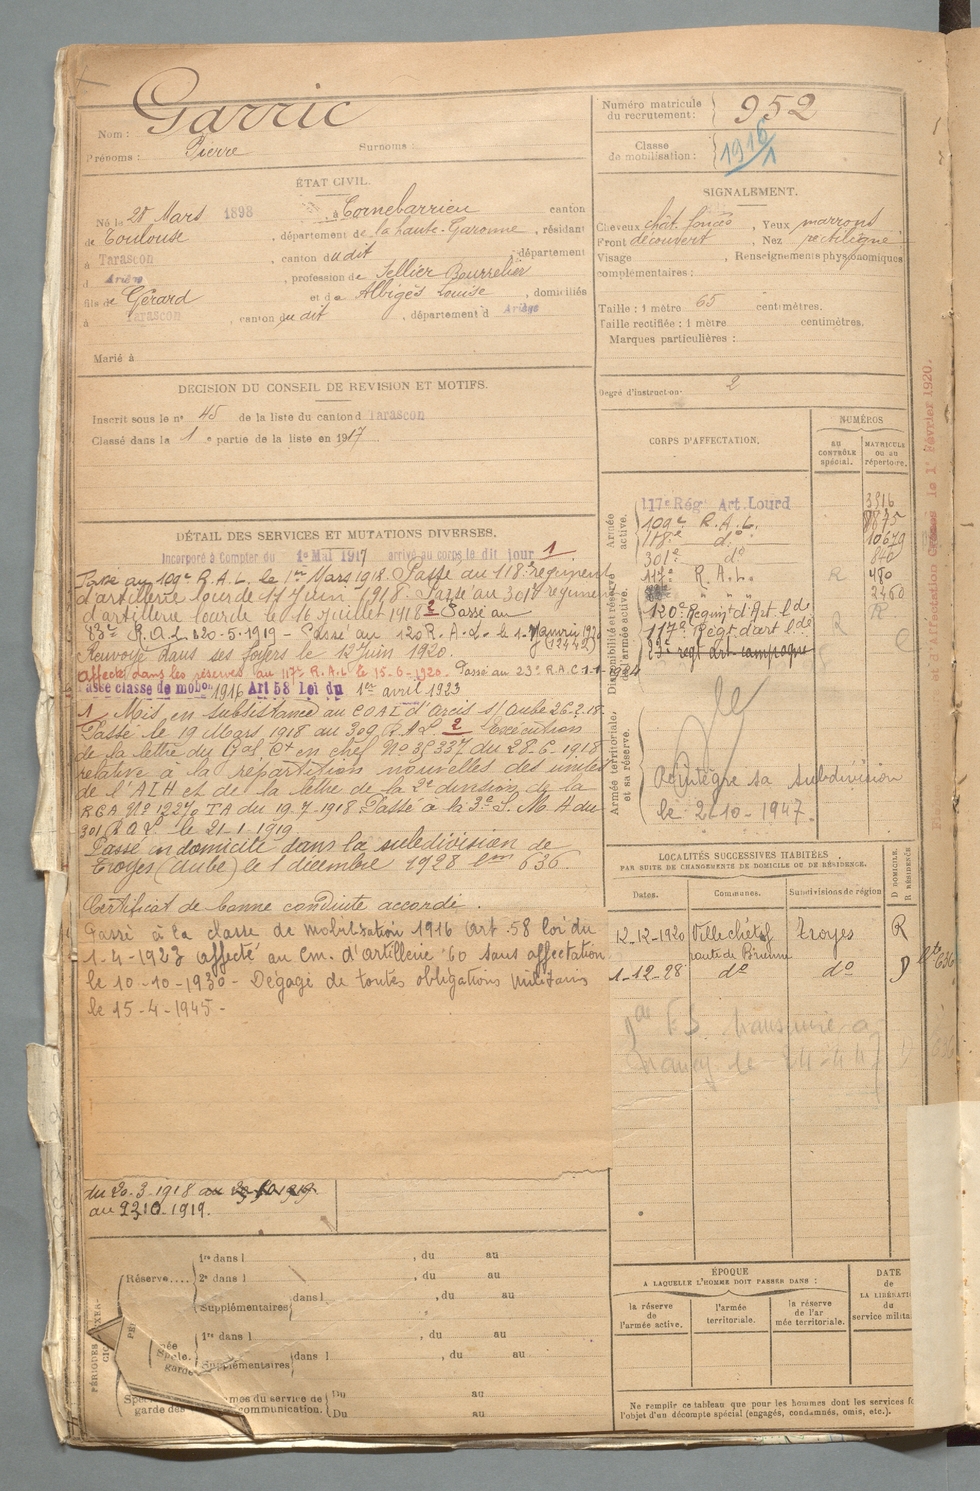 Nom : Garric
Prénoms : Pierre Surnoms :
Numéro matricule du recrutement : 952
Classe de mobilisation : 1916/1
ÉTAT CIVIL.
Né le 28 Mars 1898, à Cornebarrieu canton
de Toulouse, département de la haute-Garonne, résidant
à Tarascon, canton dudit, département
d Ariège, profession de Sellier Bourrelier
fils de Gérard et de Albigès Louise, domiciliés
à Tarascon, canton dudit, département d Ariège
Marié à
SIGNALEMENT.
Cheveux chât. foncé, Yeux marrons
Front découvert, Nez rectiligne
Visage , Renseignements physionomiques
complémentaires :
Taille : 1 mètre 65 centimètres.
Taille rectifiée : 1 mètre centimètres.
Marques particulières :
Degré d'instruction 2
DECISION DU CONSEIL DE REVISION ET MOTIFS.
Inscrit sous le n° 45 de la liste du canton d Tarascon
Classé dans la 1e partie de la liste en 1917
DÉTAIL DES SERVICES ET MUTATIONS DIVERSES.
Incorporé à Compter du 1e Mai 1917 arrivé au corps le dit jour 1
Passé au 109e R.A.L. le 1er Mars 1918. Passé au 118e régiment
d'artillerie lourde le 17 Juin 1918. Passé au 301e régiment
d'artillerie lourde le 16 juillet 1918 2 Passé au
83e R.A.L. 20-5-1919 - Passé au 120 R.A.L. le 1 Janvier 1920
Renvoyé dans ses foyers le 12 Juin 1920. (12442)
Affecté dans les réserves au 117e R.A.L le 15-6-1920. Passé au 23e R.A.C. 1-1-1924
Passé classe de mobon 1916 Art 58 Loi du 1er avril 1923
1 Mis en subsistance au COAL d'Arcis s/ Aube 26.2.18
Passé le 19 Mars 1918 au 309 R.A.L. 2 Exécution
de la lettre du Gal Ct en chef No 35337 du 28.6.1918
relative à la répartition nouvelles des unités
de l'ALH et de la lettre de la 2e division de la
RGA No 12270 TA du 19.7.1918 Passé à la 3e S. M. H du
301 R.A.L. le 21-1-1919
Passé en domicile dans la subdivision de
Troyes (Aube) le 1 décembre 1928 Lm 636
Certificat de bonne conduite accordé.
Passé à la classe de mobilisation 1916 (art. 58 loi du
1-4-1923 affecté au Cm. d'artillerie 60 sans affectation
le 10-10-1930 - Dégagé de toutes obligations militaires
le 15-4-1945 -
du 20.3.1918
au 23.10.1919.
CORPS D'AFFECTATION.
NUMÉROS
AU CONTRÔLE spécial.
MATRICULE OU AU répertoire.
Armée active.
117e Rég. Art. Lourd 3916
109e R.A.L. 7875
118e do 10679
301e do 840
Disponibilité et réserve de l'armée active.
117e R.A.L. R 480
2460
120e Regimt d'Art lde R
117e Régt d'art lde R
23e regt art campagne
Armée territoriale, et sa réserve.
Réintègre sa subdivision
le 2-10-1947.
LOCALITÉS SUCCESSIVES HABITÉES
PAR SUITE DE CHANGEMENTS DE DOMICILE OU DE RÉSIDENCE.
Dates. Communes. Subdivisions de région D DOMICILE. R RÉSIDENCE
12-12-1920 Villechétif Troyes R
route de Brienne
1-12-28 do do D
ÉPOQUE
A LAQUELLE L'HOMME DOIT PASSER DANS :
la réserve de l'armée active.
l'armée territoriale.
la réserve de l'armée territoriale.
DATE de LA LIBÉRATI du service milita
Réserve....
1re dans l , du au
2e dans l , du au
Supplémentaires dans l , du au
1re dans l , du au
Supplémentaires dans l , du au
Du au
Du au
Ne remplir ce tableau que pour les hommes dont les services
l'objet d'un décompte spécial (engagés, condamnés, omis, etc.).